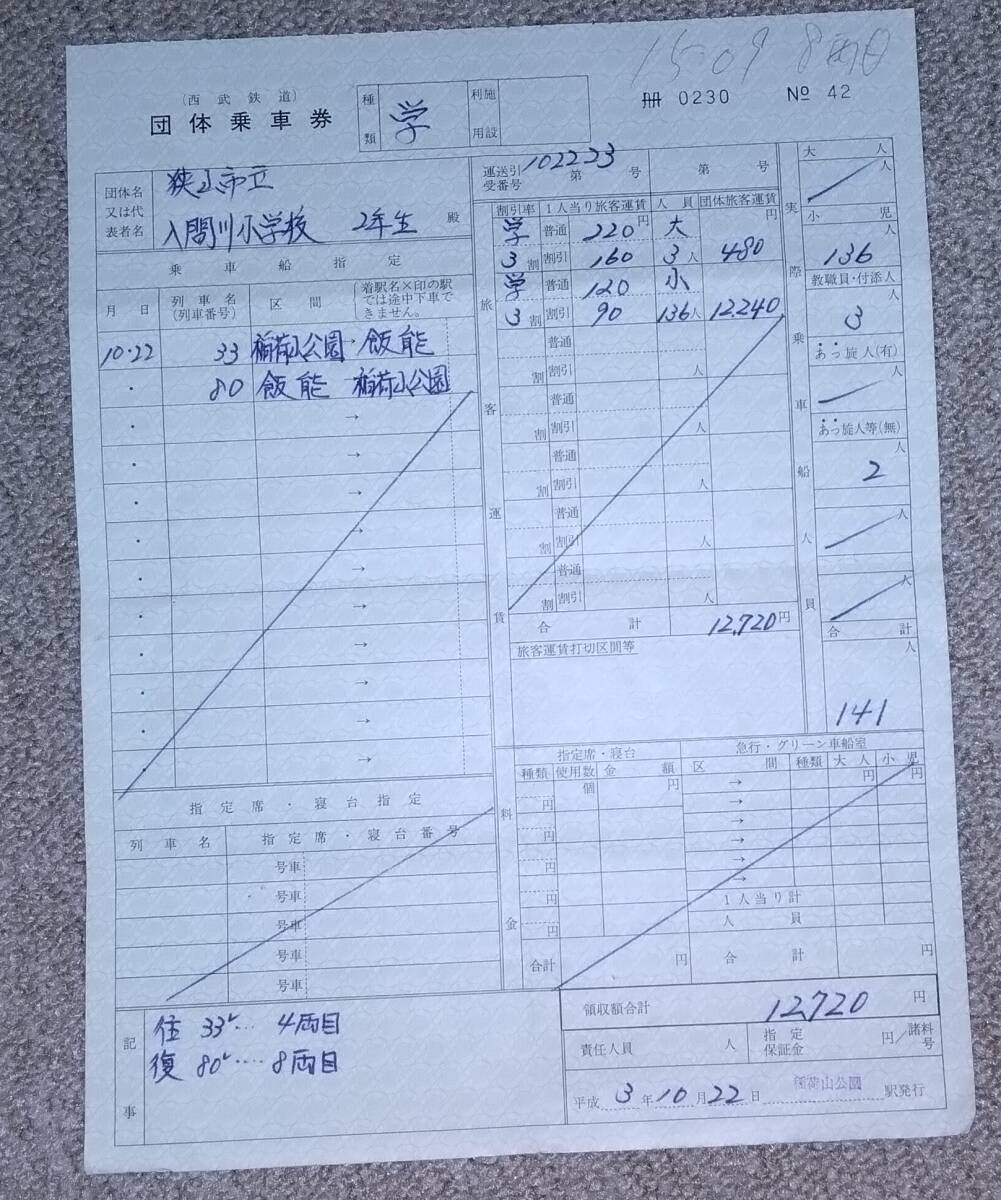 15-09 8両目
(西武鉄道)
団体乗車券
種類 学
利用施設
冊 0230 № 42
団体名又は代表者名 狭山市立
入間川小学校 2年生 殿
運送引受番号 第102223号 第 号
乗車船指定
月日 列車名(列車番号) 区間 着駅名×印の駅では途中下車できません。
10・22 33 稲荷山公園→飯能
80 飯能 稲荷山公園
旅客運賃
割引率 1人当り旅客運賃 人員 団体旅客運賃
学 普通 220円 大 円
3割 割引 160 3人 480
学 普通 120 小
3割 割引 90 136人 12240
普通
割 割引 人
普通
割 割引 人
普通
割 割引 人
普通
割 割引 人
普通
割 割引 人
合計 12,720円
旅客運賃打切区間等
実際乗車船人員
大人
人
小児
136人
教職員・付添人
3
あっ旋人(有)
人
あっ旋人等(無)
2人
人
人
合計
人
141
指定席・寝台指定
列車名 指定席・寝台番号
号車
号車
号車
号車
号車
料金
指定席・寝台
種類 使用数 金額
個 円
円
円
円
円
円
合計 円
急行・グリーン車船室
区間 種類 大人 小児
→ 円 円
→
→
→
→
→
1人当り計
人員
合計 円
記事
往 33レ… 4両目
復 80レ…. 8両目
領収額合計 12,720円
責任人員 人 指定保証金 円/諸料号
平成3年10月22日 稲荷山公園 駅発行